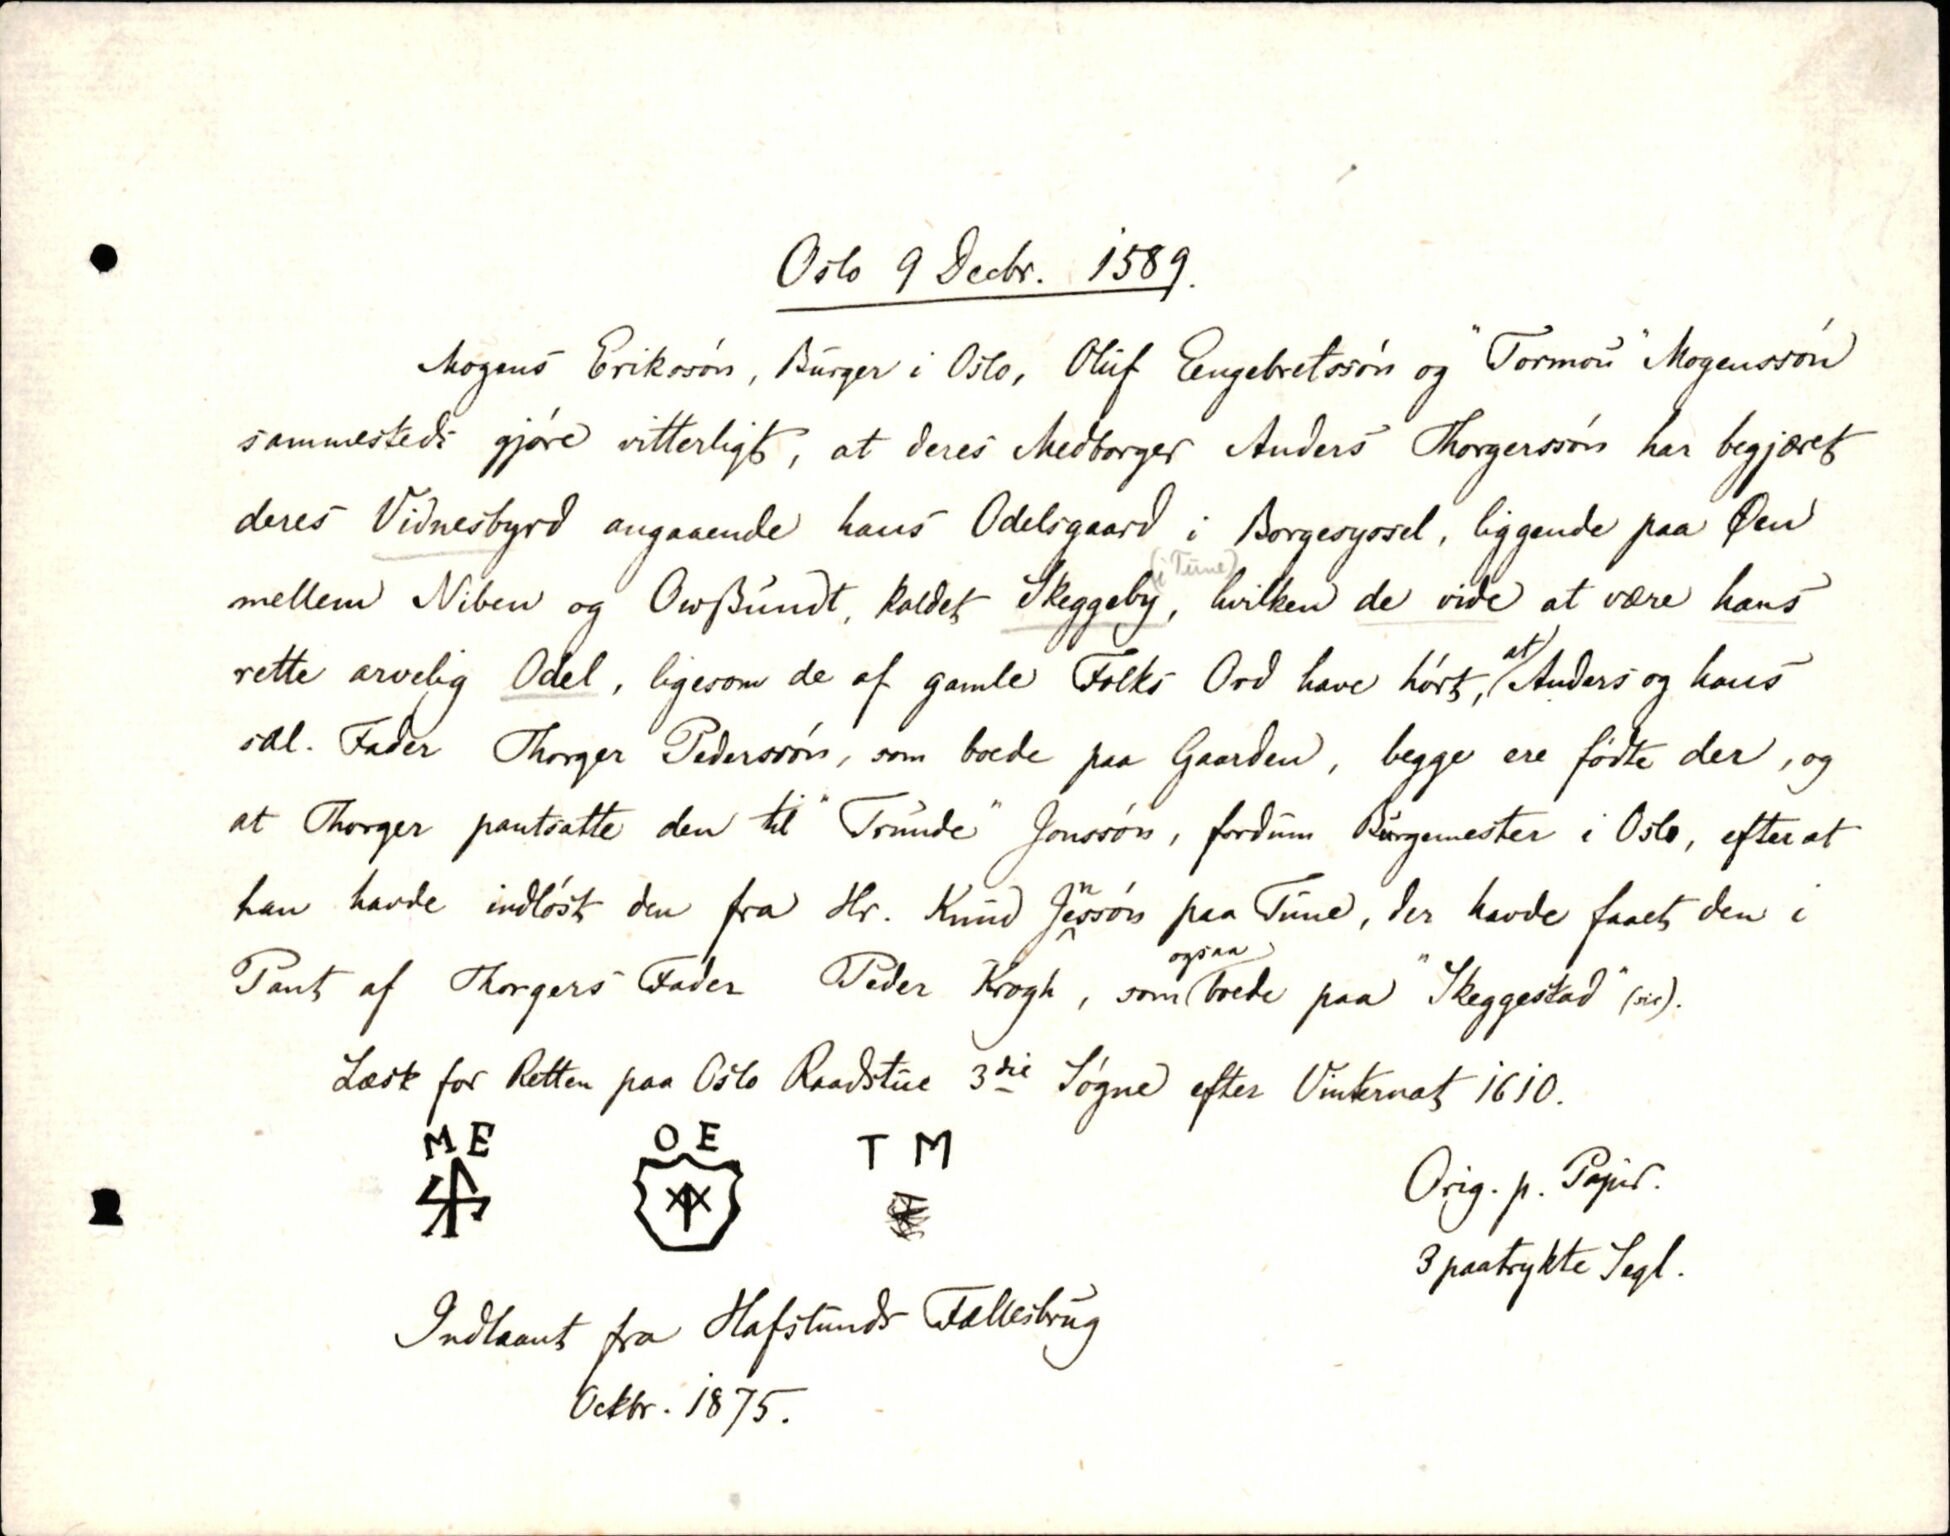 Oslo 9 Decbr. 1589.
Mogens Erikssón, Burger i Oslo, Oluf Eengebretssón og "Tormou" Mogenssón
sammesteds gjóre vitterligt, at deres Medborger Anders Thorgerssón har begjæret
deres Vidnesbyrd angaaende hans Odelsgaard i Borgesyssel, liggende paa Øen
mellem Niben og Owßundt, kaldet Skeggeby (i Tune), hvilken de vide at være hans
rette arvelig Odel, ligesom de af gamle Folks Ord have hórt, at Anders og hans
sæl. Fader Thorger Pederssón, som boede paa Gaarden, begge ere fódte der, og
at Thorger pantsatte den til "Trunde" Jonssón, fordum Burgemester i Oslo, efter at
han havde indlóst den fra Hr. Knud Jenssón paa Tune, der havde faaet den i
Pant af Thorgers Fader Peder Krogh, som ogsaa boede paa "Skeggestad" (sic).
Læst for Retten paa Oslo Raadstue 3die Sógne efter Vinternat 1610.
M E O E T M
Orig. p. Papir.
3 paatrykte Segl.
Indlaant fra Hafslunds Fællesbrug
Octbr. 1875.